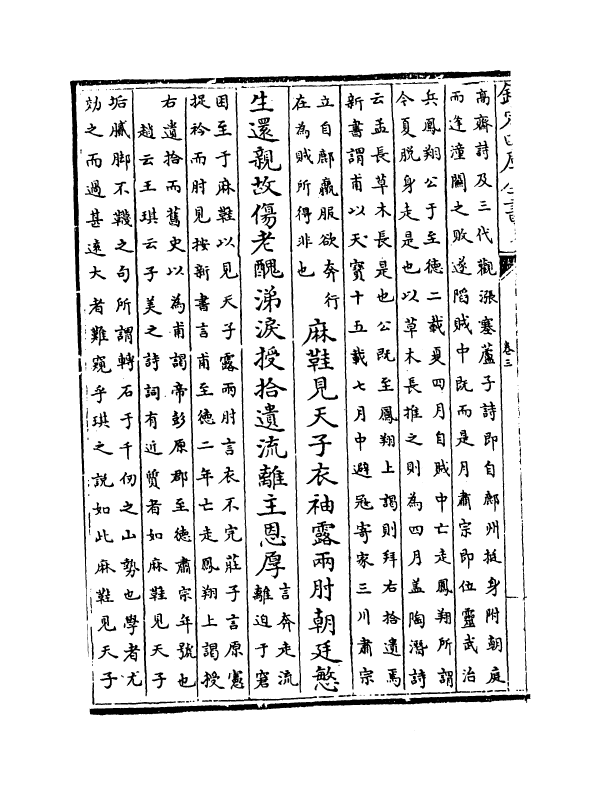 欽定四庫全書
卷三
高齋詩及三代觀漲塞蘆子詩即自鄜州挺身附朝庭
而逢潼關之敗遂陷賊中既而是月肅宗即位靈武治
兵鳳翔公于至德二載夏四月自賊中亡走鳳翔所謂
今夏脫身走是也以草木長推之則為四月盖陶潛詩
云孟長草木長是也公既至鳳翔上謁則拜右拾遺焉
新書謂甫以天寶十五載七月中避冦寄家三川肅宗
立自鄜羸服欲奔行
在為賊所得非也
麻鞋見天子衣袖露兩肘朝廷慜
生還親故傷老醜涕淚授拾遺流離主恩厚
言奔走流
離迫于窘
困至于麻鞋以見天子露兩肘言衣不完莊子言原憲
捉衿而肘見按新書言甫至德二年亡走鳳翔上謁授
右遺拾而舊史以為甫謁帝彭原郡至德肅宗年號也
趙云王琪云子美之詩詞有近質者如麻鞋見天子
垢膩脚不韈之句所謂轉石于千仞之山勢也學者尤
効之而過甚逺大者難窺乎琪之說如此麻鞋見天子